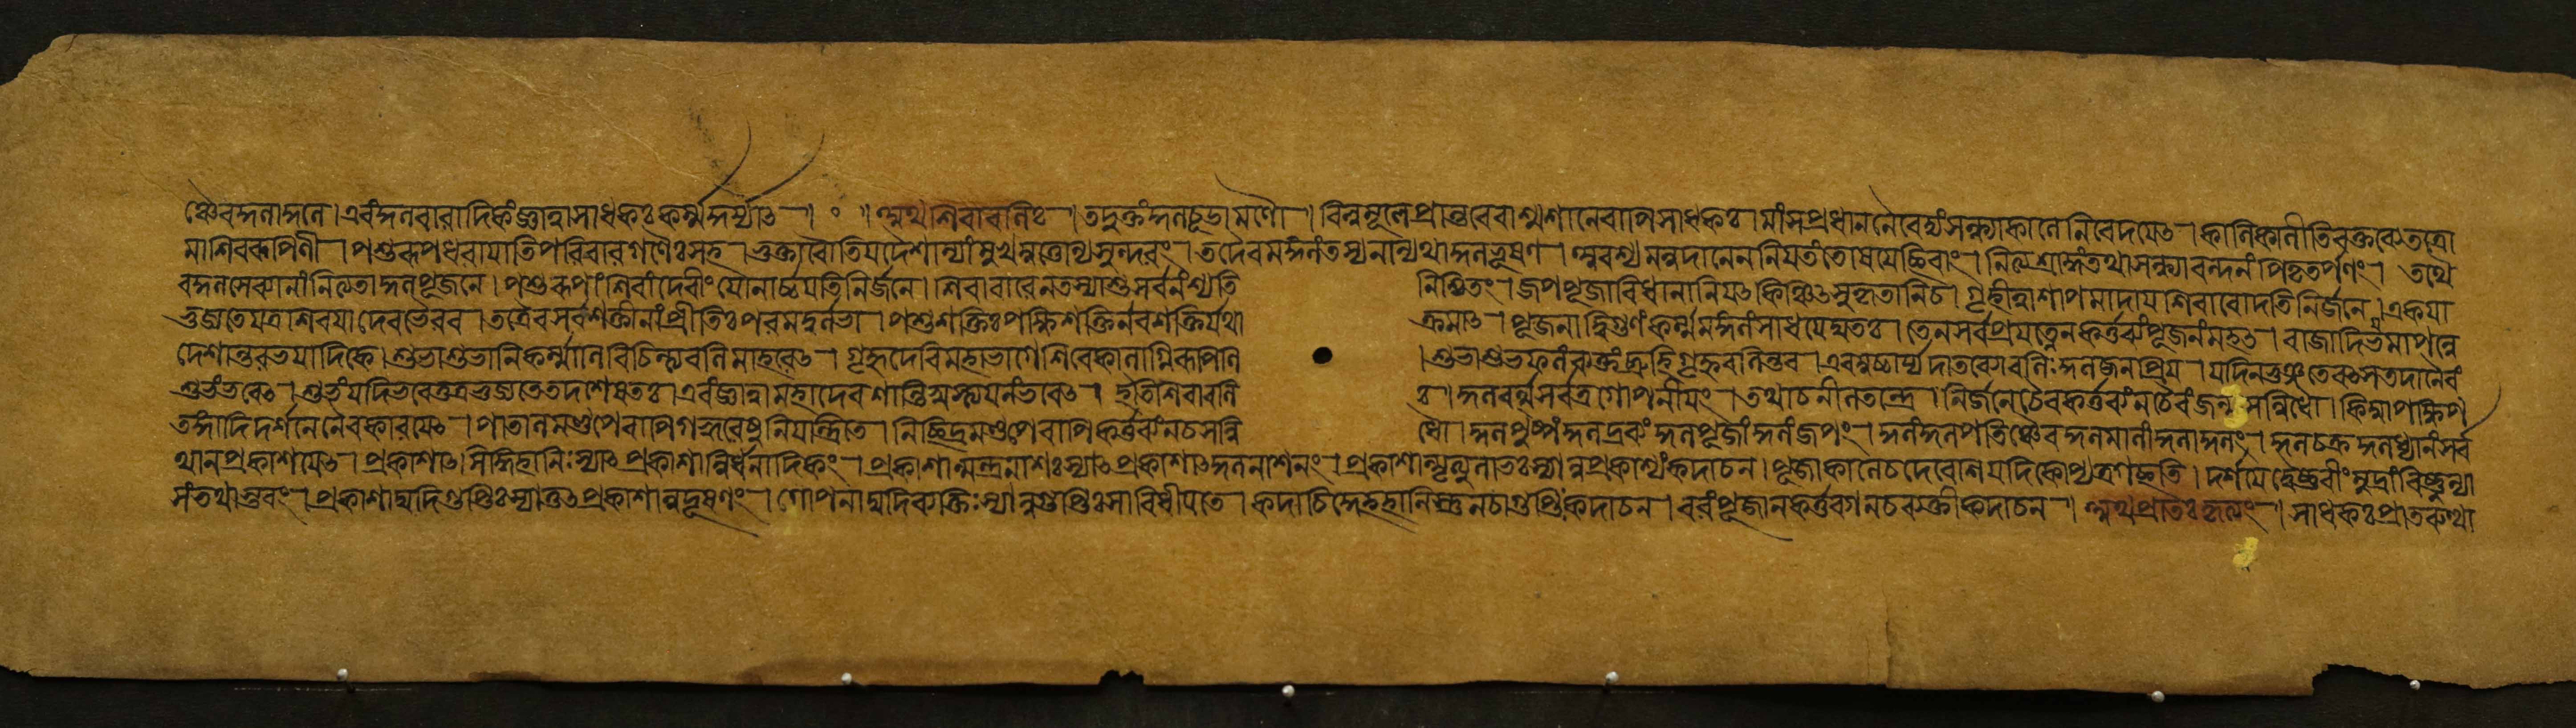 ঞ্চৈবকুলাকুলে । এবংকুলবারাদিকংজ্ঞাত্বাসাধকঃকর্ম্মকুর্য্যাৎ । ০ । অথশিবাবলিঃ । তদুক্তংকুলচূড়ামণৌ । বিল্বমূলেপ্রান্তরেবাশ্মশানেবাপিসাধকঃ । মাংসপ্রধাননৈবেদ্যংসন্ধ্যাকালেনিবেদয়েৎ । কালিকালীতিবক্তব্যেতত্রো
মাশিবরূপিণী । পশুরূপধরায়াতিপরিবারগণৈঃসহ । ভুক্ত্বারৌতিযদৈশান্যাংমুখমুত্তোল্যসুন্দরং । তদৈবমঙ্গলংতস্যনান্যথাকুলভূষণ । অবশ্যমন্নদানেননিয়তংতোষয়েচ্ছিবাং । নিত্যশ্রাদ্ধংতথাসন্ধ্যাবন্দনংপিতৃতর্পণং । তথৈ
বকুলসেব্যানাংনিত্যতাকুলপূজনে । পশুরূপাংশিবাংদেবীংযোনার্চ্চয়তিনির্জনে । শিবারাবেনতস্যাশুসর্বনংশ্যতি নিশ্চিতং । জপপূজাবিধানানিযৎকিঞ্চিৎসুকৃতানিচ । গৃহীত্বাশাপমাদায়শিবারোদতিনির্জনে । একয়া
ভুজ্যতেযত্রাশিবয়াদেবভৈরব । তত্রৈবসর্বশক্তীনাংপ্রীতিঃপরমদুর্লভা । পশুশক্তিঃপক্ষিশক্তির্নরশক্তির্যথা ক্রমাৎ । পূজনাদ্বিগুণংকর্ম্মমঙ্গলংসাধয়েদ্যতঃ । তেনসর্বপ্রযত্নেনকর্ত্তব্যংপূজনংমহৎ । রাজাদিভয়মাপন্নে
দেশান্তরভয়াদিকে । শুভাশুভানিকর্ম্মাণিবিচিন্ত্যবলিমাহরেৎ । গৃহ্নদেবিমহাভাগেশিবেকালাগ্নিরূপিণি । শুভাশুভফলংব্যক্তংব্রূহিগৃহ্নবলিন্তব । এবমুচ্চার্য্যদাতব্যোবলিঃকুলজনপ্রিয় । যদিনভুজ্যতেবৎসতদানৈবং
শুভংভবেৎ । শুভংযদিভবেত্তত্রভুজ্যতেতদশেষতঃ । এবংজ্ঞাত্বামহাদেবশান্তিস্বস্ত্যয়নংভবেৎ । ইতিশিবাবলি ঃ । কুলবর্ত্মসর্বত্রগোপনীয়ং । তথাচনীলতন্ত্রে । নির্জনেচৈবকর্ত্তব্যংনচৈবংজনসন্নিধৌ । কিম্বাপক্ষিপ
তঙ্গাদিদর্শনেনৈবকারয়েৎ । পাতালমণ্ডপেবাপিগহ্বরেষুনিয়ন্ত্রিতে । নিচ্ছিদ্রমণ্ডপেবাপিকর্ত্তব্যংনচসন্নি ধৌ । কুলপুষ্পংকুলদ্রব্যংকুলপূজাংকুলংজপং । কুলংকুলপতিঞ্চৈবকুলমালাংকুলাকুলং । কুলচক্রকুলধ্যানংসর্ব
থানপ্রকাশয়েৎ । প্রকাশাৎসিদ্ধিহানিঃস্যাৎপ্রকাশান্নির্ধনাদিকং । প্রকাশান্মন্ত্রনাশঃস্যাৎপ্রকাশাৎকুলনাশনং । প্রকাশান্মৃত্যুলাভঃস্যান্নপ্রকাশ্যংকদাচন । পূজাকালেচদেবেশিযদিকোপ্যত্রগচ্ছতি । দর্শয়েদ্বৈষ্ণবীংমুদ্রাংবিষ্ণুন্যা
সংতথাস্তবং । প্রকাশাদ্যদিগুপ্তিঃস্যাত্তৎপ্রকাশান্নদূষণং । গোপনাদ্যদিব্যক্তিঃস্যান্নগুপ্তিঃসাবিধীয়তে । কদাচিদ্দেহহানিস্তুনচাগুপ্তিঃকদাচন । বরংপূজানকর্ত্তব্যানচব্যক্তীকদাচন । অথপ্রাতঃকৃত্যং । সাধকঃপ্রাতরুত্থা